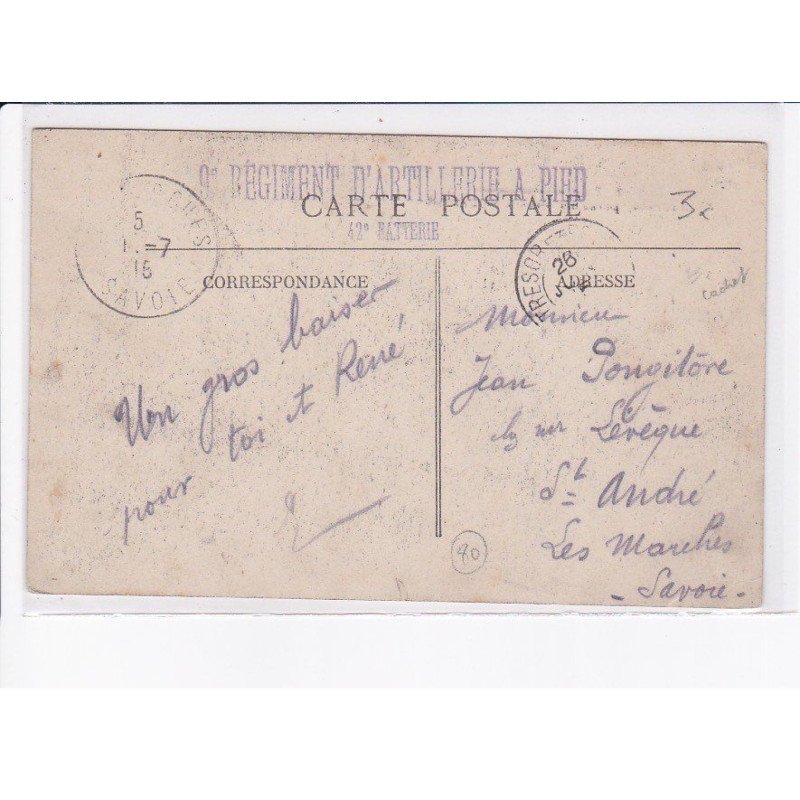 9e RÉGIMENT D'ARTILLERIE A PIED
CARTE POSTALE
42e BATTERIE
3€
5
1 -7
16
SAVOIE
TRESOR
28
CORRESPONDANCE
ADRESSE
cachet
Un gros baiser
pour toi et René
Monsieur
Jean Pongitôre
chz mr Lévêque
St André
Les Marches
- Savoie -
80